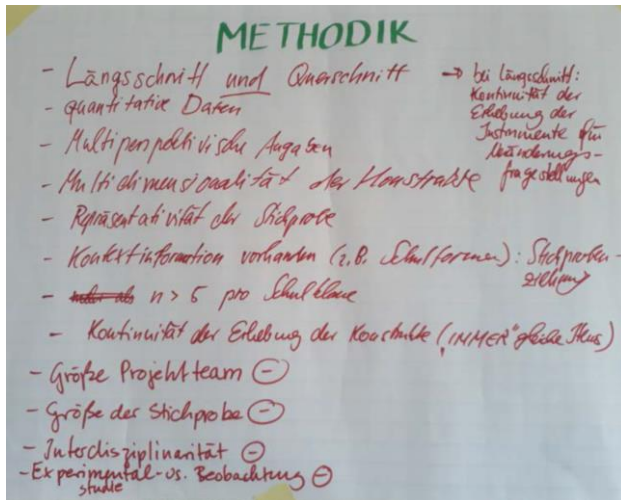 METHODIK
- Längsschnitt und Querschnitt
→ bei Längsschnitt:
Kontinuität der
Erhebung der
Instrumente für
Veränderungs-
fragestellungen
- quantitative Daten
- Multiperspektivische Angaben
- Multidimensionalität der Konstrukte
- Repräsentativität der Stichprobe
- Kontextinformation vorhanden (z.B. Schulformen): Stichproben-
ziehung
- n > 5 pro Schulklasse
- Kontinuität der Erhebung der Konstrukte ("IMMER" gleiche Items)
- Größe Projektteam (-)
- Größe der Stichprobe (-)
- Interdisziplinarität (-)
- Experimental- vs. Beobachtung (-)
studie